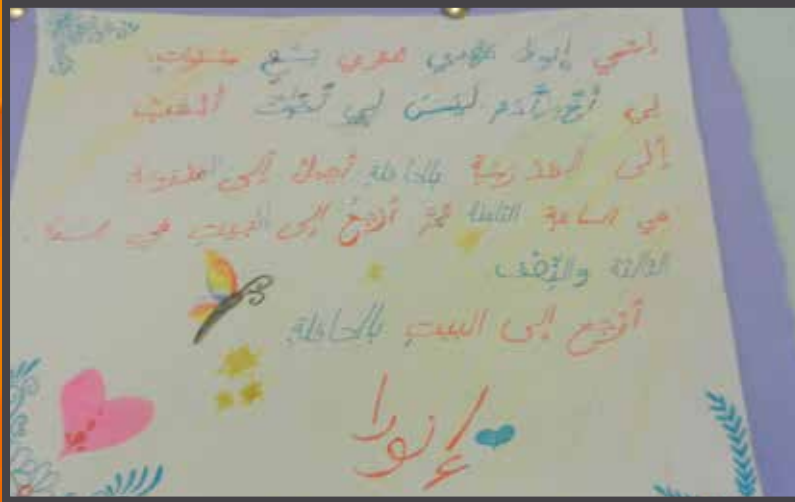 إسمي إنورا عمري تسع سنوات
لي أخ ليس لي أخت أذهب
إلى المدرسة بالحافلة أصل إلى المدرسة
في الساعة الثامنة ثم أرجع إلى البيت في
الثالثة والنصف
أرجع إلى البيت بالحافلة
إنورا